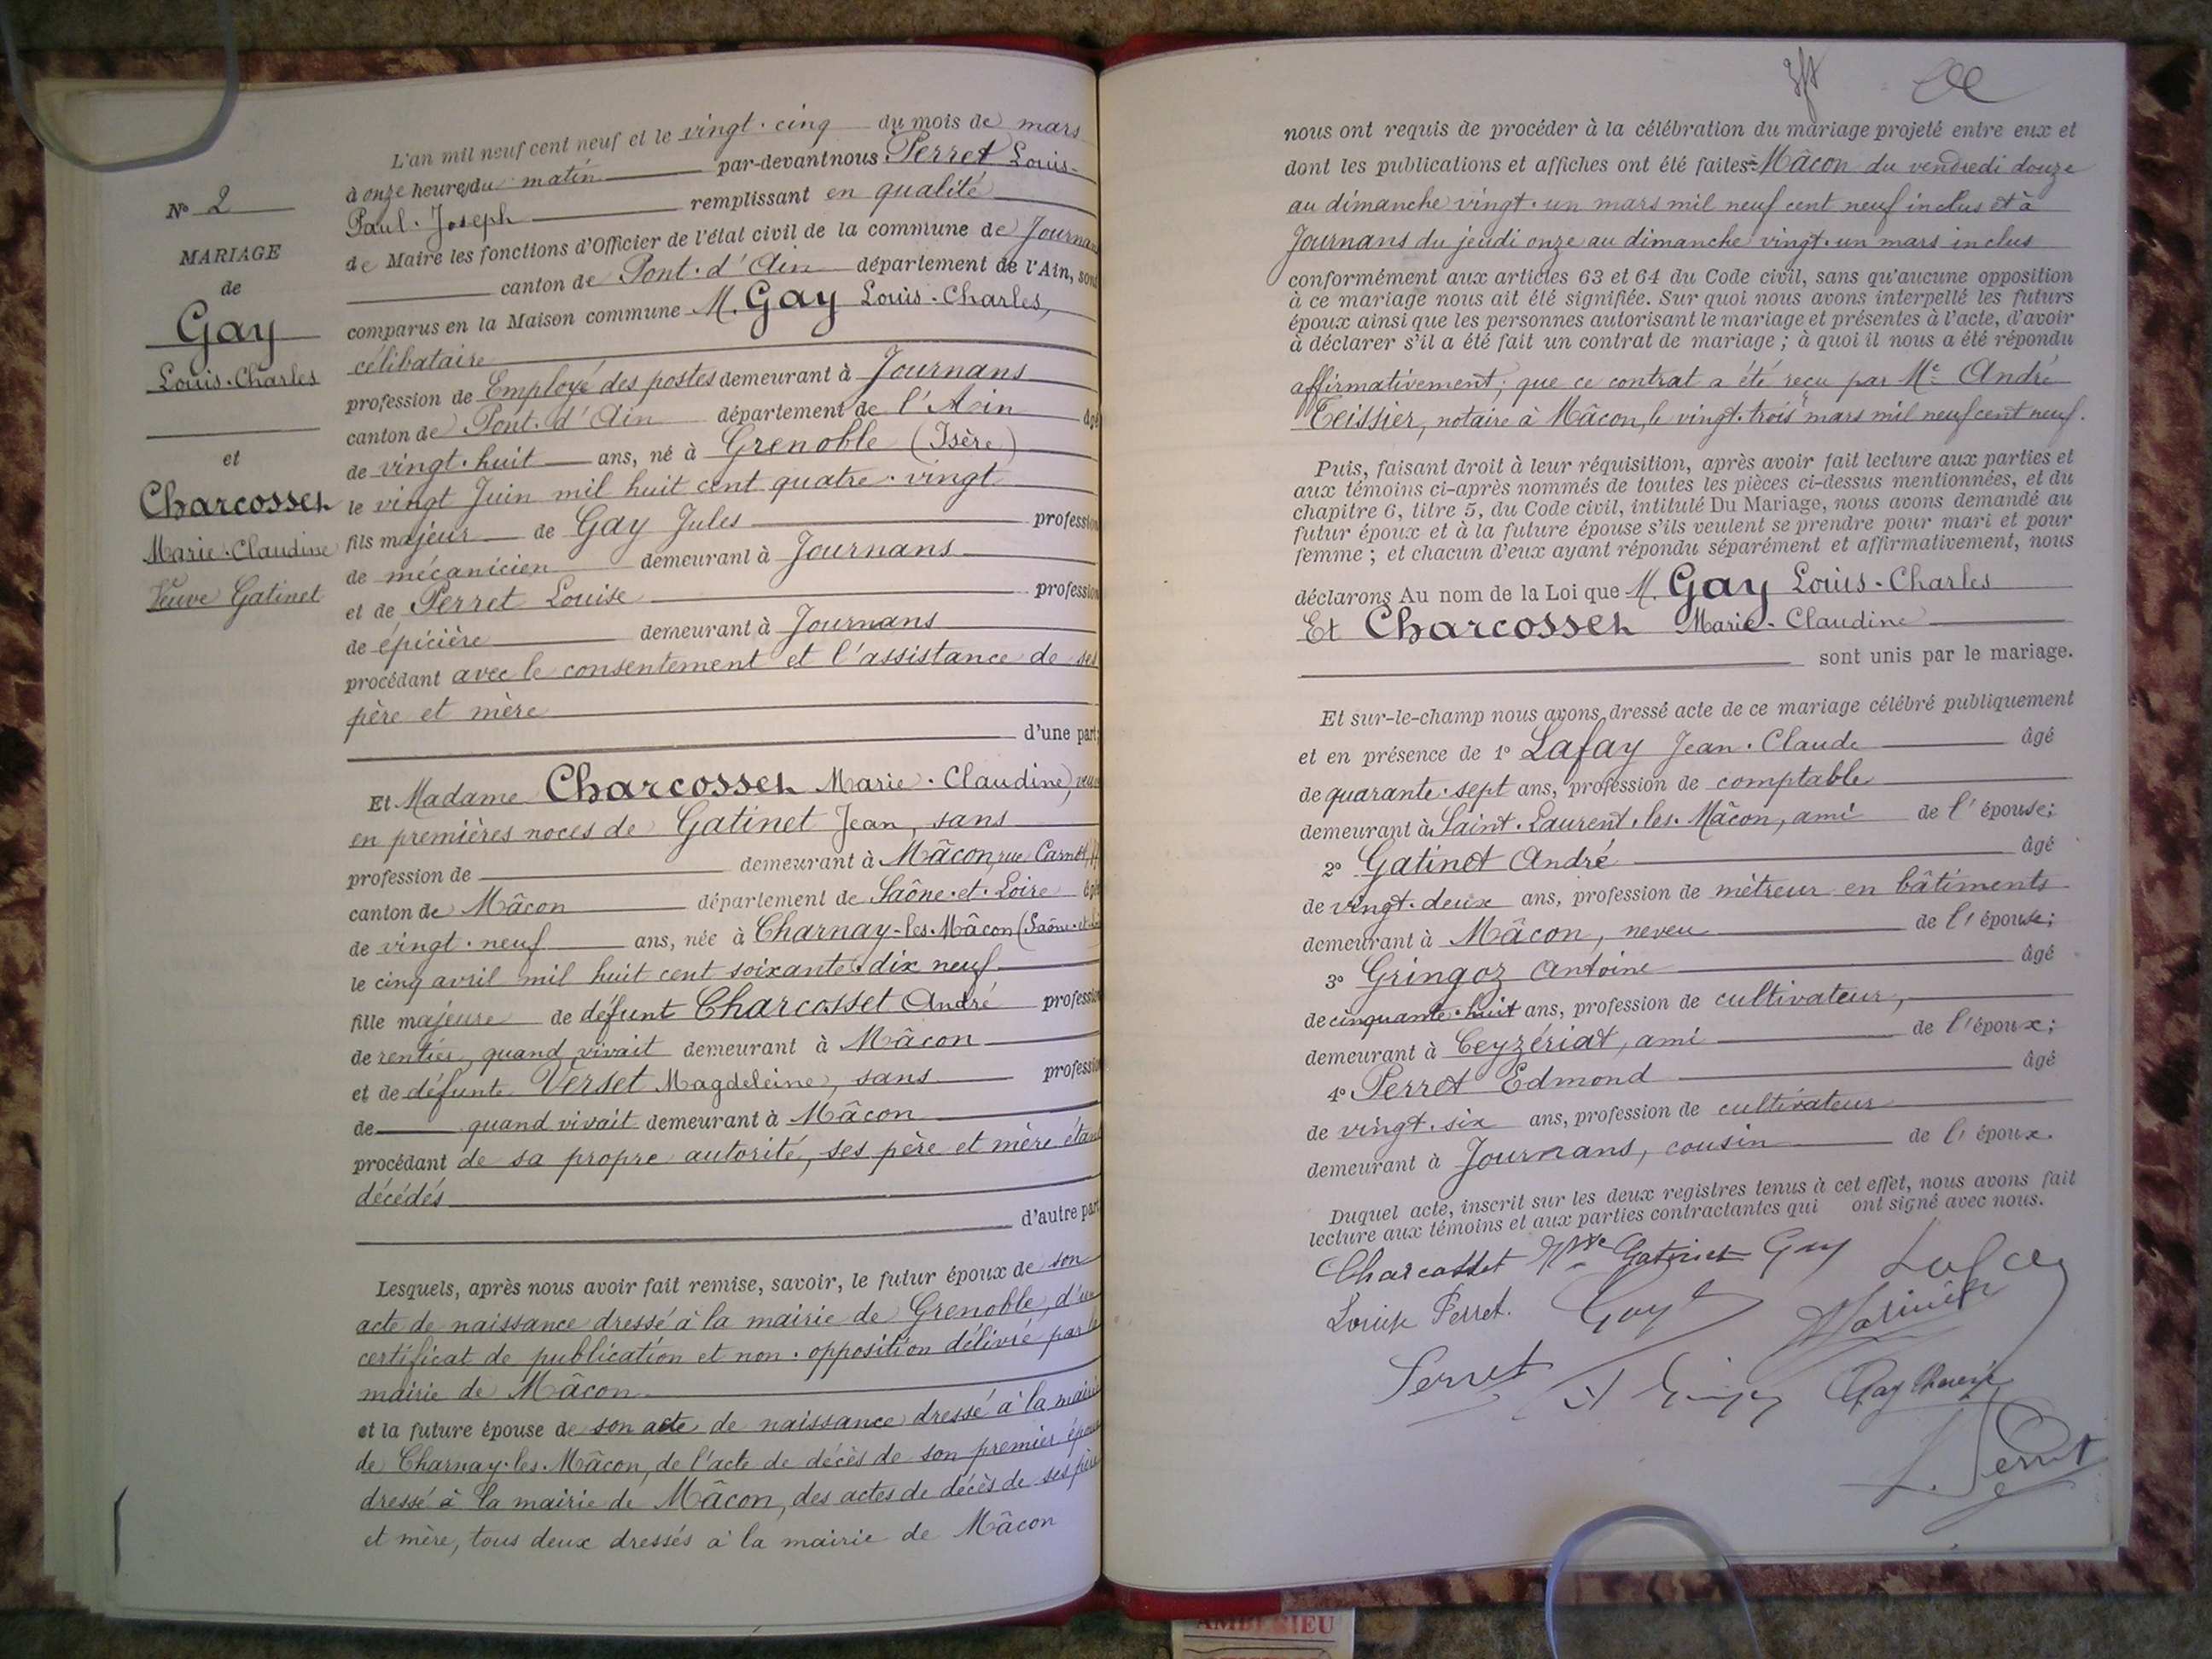 N° 2
MARIAGE
de
Gay
Louis-Charles
et
Charcosset
Marie-Claudine
Veuve Gatinet
L'an mil neuf cent neuf et le vingt-cinq du mois de mars
à onze heures du matin par-devant nous Perret Louis-
Paul-Joseph remplissant en qualité
de Maire les fonctions d'Officier de l'état civil de la commune de Journans
canton de Pont-d'Ain département de l'Ain, sont
comparus en la Maison commune M. Gay Louis-Charles,
célibataire
profession de Employé des postes demeurant à Journans
canton de Pont-d'Ain département de l'Ain âgé
de vingt-huit ans, né à Grenoble (Isère)
le vingt Juin mil huit cent quatre-vingt
fils majeur de Gay Jules profession
de mécanicien demeurant à Journans
et de Perret Louise profession
de épicière demeurant à Journans
procédant avec le consentement et l'assistance de ses
père et mère
d'une part;
Et Madame Charcosset Marie-Claudine, veuve
en premières noces de Gatinet Jean, sans
profession de demeurant à Mâcon, rue Carnot
canton de Mâcon département de Saône-et-Loire âgée
de vingt-neuf ans, née à Charnay-les-Mâcon (Saône-et-L
le cinq avril mil huit cent soixante-dix neuf
fille majeure de défunt Charcosset André profession
de rentier, quand vivait demeurant à Mâcon
et de défunte Verset Magdeleine, sans profession
de quand vivait demeurant à Mâcon
procédant de sa propre autorité, ses père et mère étant
décédés
d'autre part
Lesquels, après nous avoir fait remise, savoir, le futur époux de son
acte de naissance dressé à la mairie de Grenoble, d'un
certificat de publication et non-opposition délivré par la
mairie de Mâcon
et la future épouse de son acte de naissance dressé à la mairie
de Charnay-les-Mâcon, de l'acte de décès de son premier époux
dressé à la mairie de Mâcon, des actes de décès de ses père
et mère, tous deux dressés à la mairie de Mâcon
nous ont requis de procéder à la célébration du mariage projeté entre eux et
dont les publications et affiches ont été faites à Mâcon du vendredi douze
au dimanche vingt-un mars mil neuf cent neuf inclus et à
Journans du jeudi onze au dimanche vingt-un mars inclus
conformément aux articles 63 et 64 du Code civil, sans qu'aucune opposition
à ce mariage nous ait été signifiée. Sur quoi nous avons interpellé les futurs
époux ainsi que les personnes autorisant le mariage et présentes à l'acte, d'avoir
à déclarer s'il a été fait un contrat de mariage ; à quoi il nous a été répondu
affirmativement, que ce contrat a été reçu par Me André
Teissier, notaire à Mâcon, le vingt-trois mars mil neuf cent neuf.
Puis, faisant droit à leur réquisition, après avoir fait lecture aux parties et
aux témoins ci-après nommés de toutes les pièces ci-dessus mentionnées, et du
chapitre 6, titre 5, du Code civil, intitulé Du Mariage, nous avons demandé au
futur époux et à la future épouse s'ils veulent se prendre pour mari et pour
femme ; et chacun d'eux ayant répondu séparément et affirmativement, nous
déclarons Au nom de la Loi que M. Gay Louis-Charles
Et Charcosset Marie-Claudine
sont unis par le mariage.
Et sur-le-champ nous avons dressé acte de ce mariage célébré publiquement
et en présence de 1° Lafay Jean-Claude âgé
de quarante-sept ans, profession de comptable
demeurant à Saint-Laurent-les-Mâcon, ami de l'épouse;
2° Gatinet André âgé
de vingt-deux ans, profession de métreur en bâtiments
demeurant à Mâcon, neveu de l'épouse;
3° Gringoz Antoine âgé
de cinquante-huit ans, profession de cultivateur,
demeurant à Ceyzériat, ami de l'époux;
4° Perret Edmond âgé
de vingt-six ans, profession de cultivateur
demeurant à Journans, cousin de l'époux.
Duquel acte, inscrit sur les deux registres tenus à cet effet, nous avons fait
lecture aux témoins et aux parties contractantes qui ont signé avec nous.
Charcosset Vve Gatinet Gay Lafay
Louise Perret. Gay
Perret Gay
L. Perret
AMBERIEU